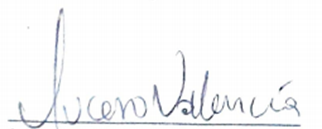 Lucero Valencia